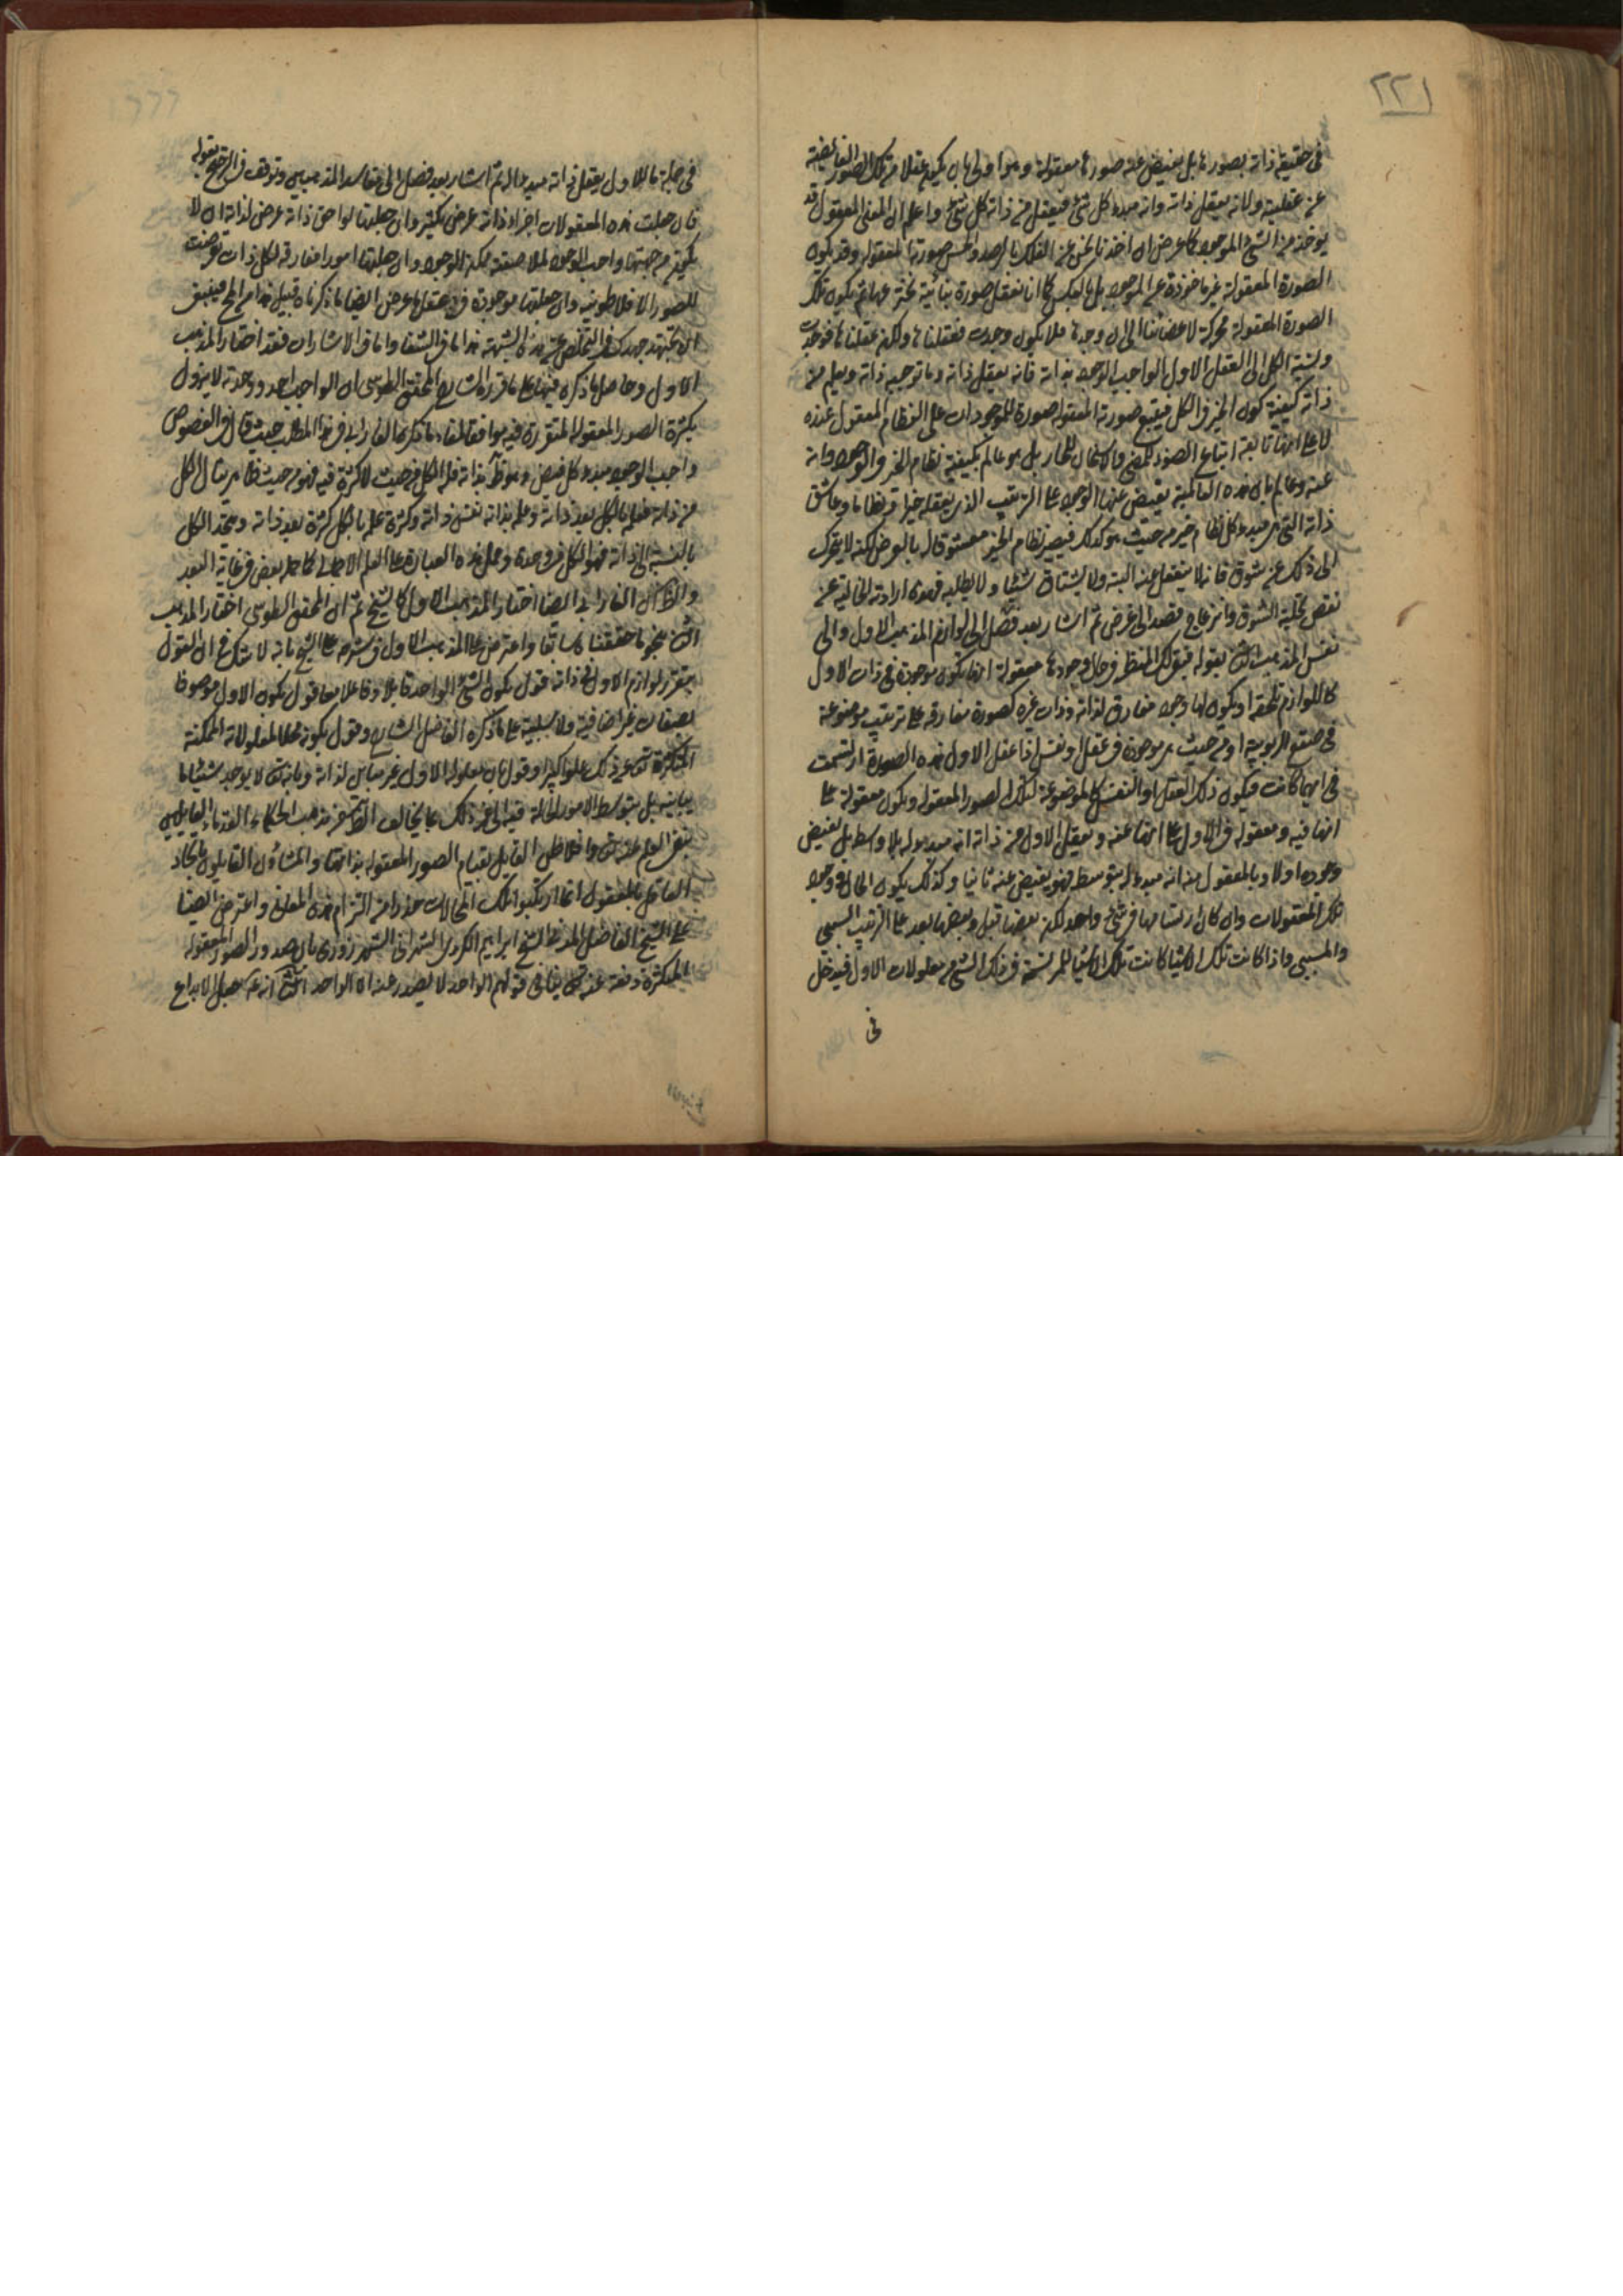 ٢٢١
في حقيقة ذاته بصورها بل يفيض عنه صورها معقولة وهو اولى بان يكون عقلا من تلك الصور الفائضة
عن عقليته ولانه يعقل ذاته وانه مبدء كل شئ فيعقل من ذاته كل شئ واعلم ان المعنى المعقول قد
يوخذ من الشئ الموجود كما عرض ان اخذنا نحن عن الفلك بالرصد والحس صورته المعقولة وقد يكون
الصورة المعقولة غير ماخوذة عن الموجود بل بالعكس كما انا نعقل صورة بنائية نخترعها ثم يكون تلك
الصورة المعقولة محركة لاعضائنا الى ان نوجدها فلا يكون وجدت فعقلناها ولكن عقلناها فوجدت
ونسبة الكل الى العقل الاول الواجب الوجود هذا فانه يعقل ذاته وما توجبه ذاته ويعلم من
ذاته كيفية كون الخير في الكل فيتبع صورته المعقولة صورة الموجودات على النظام المعقول عنده
لا على انها تابعة اتباع الضوء للمضئ والاسخان للحار بل هو عالم بكيفية نظام الخير في الوجود وانه
عنه وعالم بان هذه العالمية يفيض عنها الوجود على الترتيب الذي يعقله خيرا ونظاما وعاشق
ذاته التي هي مبدء كل نظام خير من حيث هو كذلك فيصير نظام الخير معشوقا له بالعرض لكنه لا يتحرك
الى ذلك عن شوق فانه لا ينفعل عنه البتة ولا يشتاق شيئا ولا يطلبه فهذه ارادته الخالية عن
نقص يجلبه الشوق وانزعاج قصد الى غرض ثم اشار بعد فصل الى لوازم المذهب الاول والى
نفس المذهب الثاني بقوله فبقي لك النظر في حال وجودها معقولة انها تكون موجودة في ذات الاول
كاللوازم تلحقه او يكون لها وجود مفارق لذاته وذات غيره كصورة مفارقة على ترتيب موضوعة
في صقع الربوبية او من حيث هي موجودة في عقل او نفس اذا عقل الاول هذه الصورة ارتسمت
في ايها كانت فيكون ذلك العقل او النفس كالموضوعة لتلك الصور المعقولة ويكون معقولة على
انها فيه ومعقولة في الاول على انها عنه ويعقل الاول من ذاته انه مبدء لها بلا وسط بل يفيض
وجوده اولا وبالمعقول منه انه مبدء له بتوسط فهو يفيض عنه ثانيا وكذلك يكون الحال في وجود
تلك المعقولات وان كان ارتسامها في شئ واحد لكن بعضها قبل وبعضها بعد على الترتيب السببي
والمسببي واذا كانت تلك الاشياء كانت تلك الاشياء المرتسمة في ذلك الشئ من معلولات الاول فيدخل
في
في جملة ما الاول يعقل ذاته مبدءا لها ثم اشار بعد فصل الى مفاسد المذهبين وتوقف في الترجيح بقوله
فان جعلت هذه المعقولات اجزاء ذاته عرض تكثر وان جعلتها لواحق ذاته عرض لذاته ان لا
يكون من جهتها واجب الوجود لملاصقته ممكن الوجود وان جعلتها امورا مفارقة لكل ذات عرضت
للصور الافلاطونية وان جعلتها موجودة في عقل ما عرض ايضا ما ذكرناه قبيل هذا من المحال فينبغي
ان تجتهد جهدك في التخلص عن هذه الشبهة هذا ما في الشفا واما في الاشارات فقد اختار المذهب
الاول وحاصل ما ذكره فيها على ما قرره الشارح المحقق الطوسي ان الواجب واحد ووحدته لا يزول
بكثرة الصور المعقولة المتقررة فيه موافقا لما ذكره الفارابي في هذا المطلب حيث قال في الفصوص
واجب الوجود مبدء كل فيض وهو ظاهر بذاته فله الكل من حيث لا كثرة فيه فهو من حيث ظاهر ينال الكل
من ذاته فعلمه بالكل بعد ذاته وعلمه بذاته نفس ذاته وكثرة علمه بالكل كثرة بعد ذاته ويتحد الكل
بالنسبة الى ذاته فهو الكل في وحدة وحمل هذه العبارة على العلم الاجمالي كما حمله بعض في غاية البعد
والظاهر ان الفارابي ايضا اختار المذهب الاول كالشيخ ثم ان المحقق الطوسي اختار المذهب
الثاني بنحو ما حققناه سابقا واعترض على المذهب الاول في شرحه على الشيخ بانه لا شك في ان القول
بتقرر لوازم الاول في ذاته قول بكون الشئ الواحد قابلا وفاعلا معا وقول بكون الاول موصوفا
بصفات غير اضافية ولا سلبية على ما ذكره الفاضل الشارح وقول بكونه محلا لمعلولاته الممكنة
المتكثرة تعالى عن ذلك علوا كبيرا وقول بان معلوله الاول غير مباين لذاته وبانه تعالى لا يوجد شيئا مما
يباينه بل بتوسط الامور الحالة فيه الى غير ذلك مما يخالف الظاهر من مذهب الحكماء القدماء القائلين
بنفي العلم عنه تعالى وافلاطن القائل بقيام الصور المعقولة بذاتها والمشاؤن القائلون باتحاد
العاقل بالمعقول انما ارتكبوا تلك المحالات حذرا من التزام هذه المعاني واعترض ايضا
على الشيخ الفاضل المدقق الشيخ ابراهيم الكردي الشهراني الشهرزوري بان صدور الصور المعقولة
المتكثرة دفعة عنه تعالى ينافي قولهم الواحد لا يصدر عنه الا الواحد